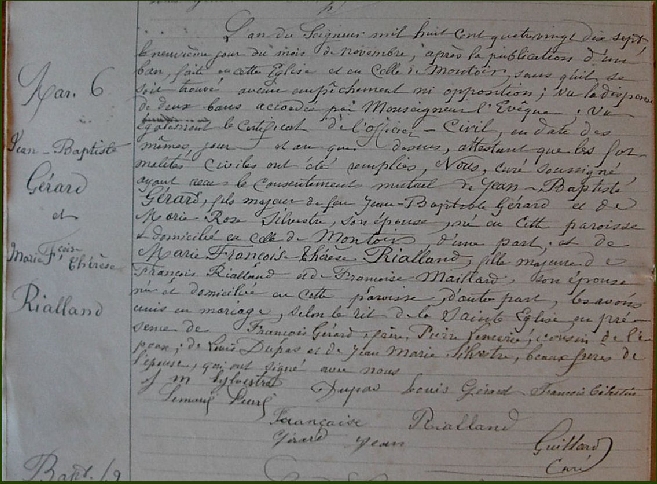 L'an du Seigneur mil huit cent quatre vingt dix sept
le neuvième jour du mois de novembre, après la publication d'un
ban, faite en cette Eglise et en celle de Montoir, sans qu'il se
soit trouvé aucun empêchement ni opposition; Vu la dispense
de deux bans accordée par Monseigneur l'Evêque; Vu
également le certificat de l'officier-Civil, en date des
mêmes jour et an que dessus, attestant que les for-
malités civiles ont été remplies, Nous, curé soussigné
ayant reçu le consentement mutuel de Jean-Baptiste
Gérard, fils majeur de feu Jean-Baptiste Gérard et de
Marie-Rose Silvestre, son épouse, né en cette paroisse
domicilié en celle de Montoir, d'une part; et de
Marie François-Thérèse Rialland, fille majeure de
François Rialland et de Françoise Maillard, son épouse
née et domiciliée en cette paroisse, d'autre part, les avons
unis en mariage, selon le rit de la Sainte Eglise en pré-
sence de François Gérard, Pierre cousin de l'é-
poux; de Louis Dupas et de Jean Marie Silvestre, beaux frères de
l'épouse, qui ont signé avec nous
Mar. 6
Jean-Baptiste
Gérard
et
Marie Fçoise
Thérèse
Rialland
J M Sylvestre Dupas Louis Gérard François
Pierre
Françoise Rialland
Gérard Jean Guillard
Curé
Bapt.